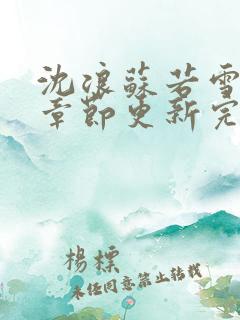 沈浪蘇若雪
章節更新完
楊標
未任同意禁止转载